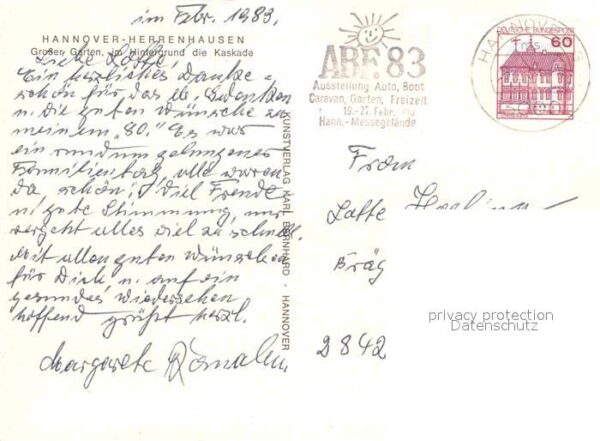 im Febr. 1983.
HANNOVER-HERRENHAUSEN
Großer Garten, im Hintergrund die Kaskade
Liebe Lotte!
Ein herzliches Danke-
schön für das lb. Gedenken
u. die guten Wünsche zu
meinem "80." Es war
ein rundum gelungener
Familientag, alle waren
da, schön! Viel Freude
u. gute Stimmung, nur
vergeht alles viel zu schnell.
Mit allen guten Wünschen
für Dich u. auf ein
gesundes Wiedersehen
hoffend grüßt herzl.
Margarete
KUNSTVERLAG KARL BERNHARD · HANNOVER
ABF 83
Ausstellung Auto, Boot
Caravan, Garten, Freizeit
19.-27. Febr.
Hann.-Messegelände
HANNOVER
DEUTSCHE BUNDESPOST
60
Frau
Lotte
Bräg
2842
privacy protection
Datenschutz